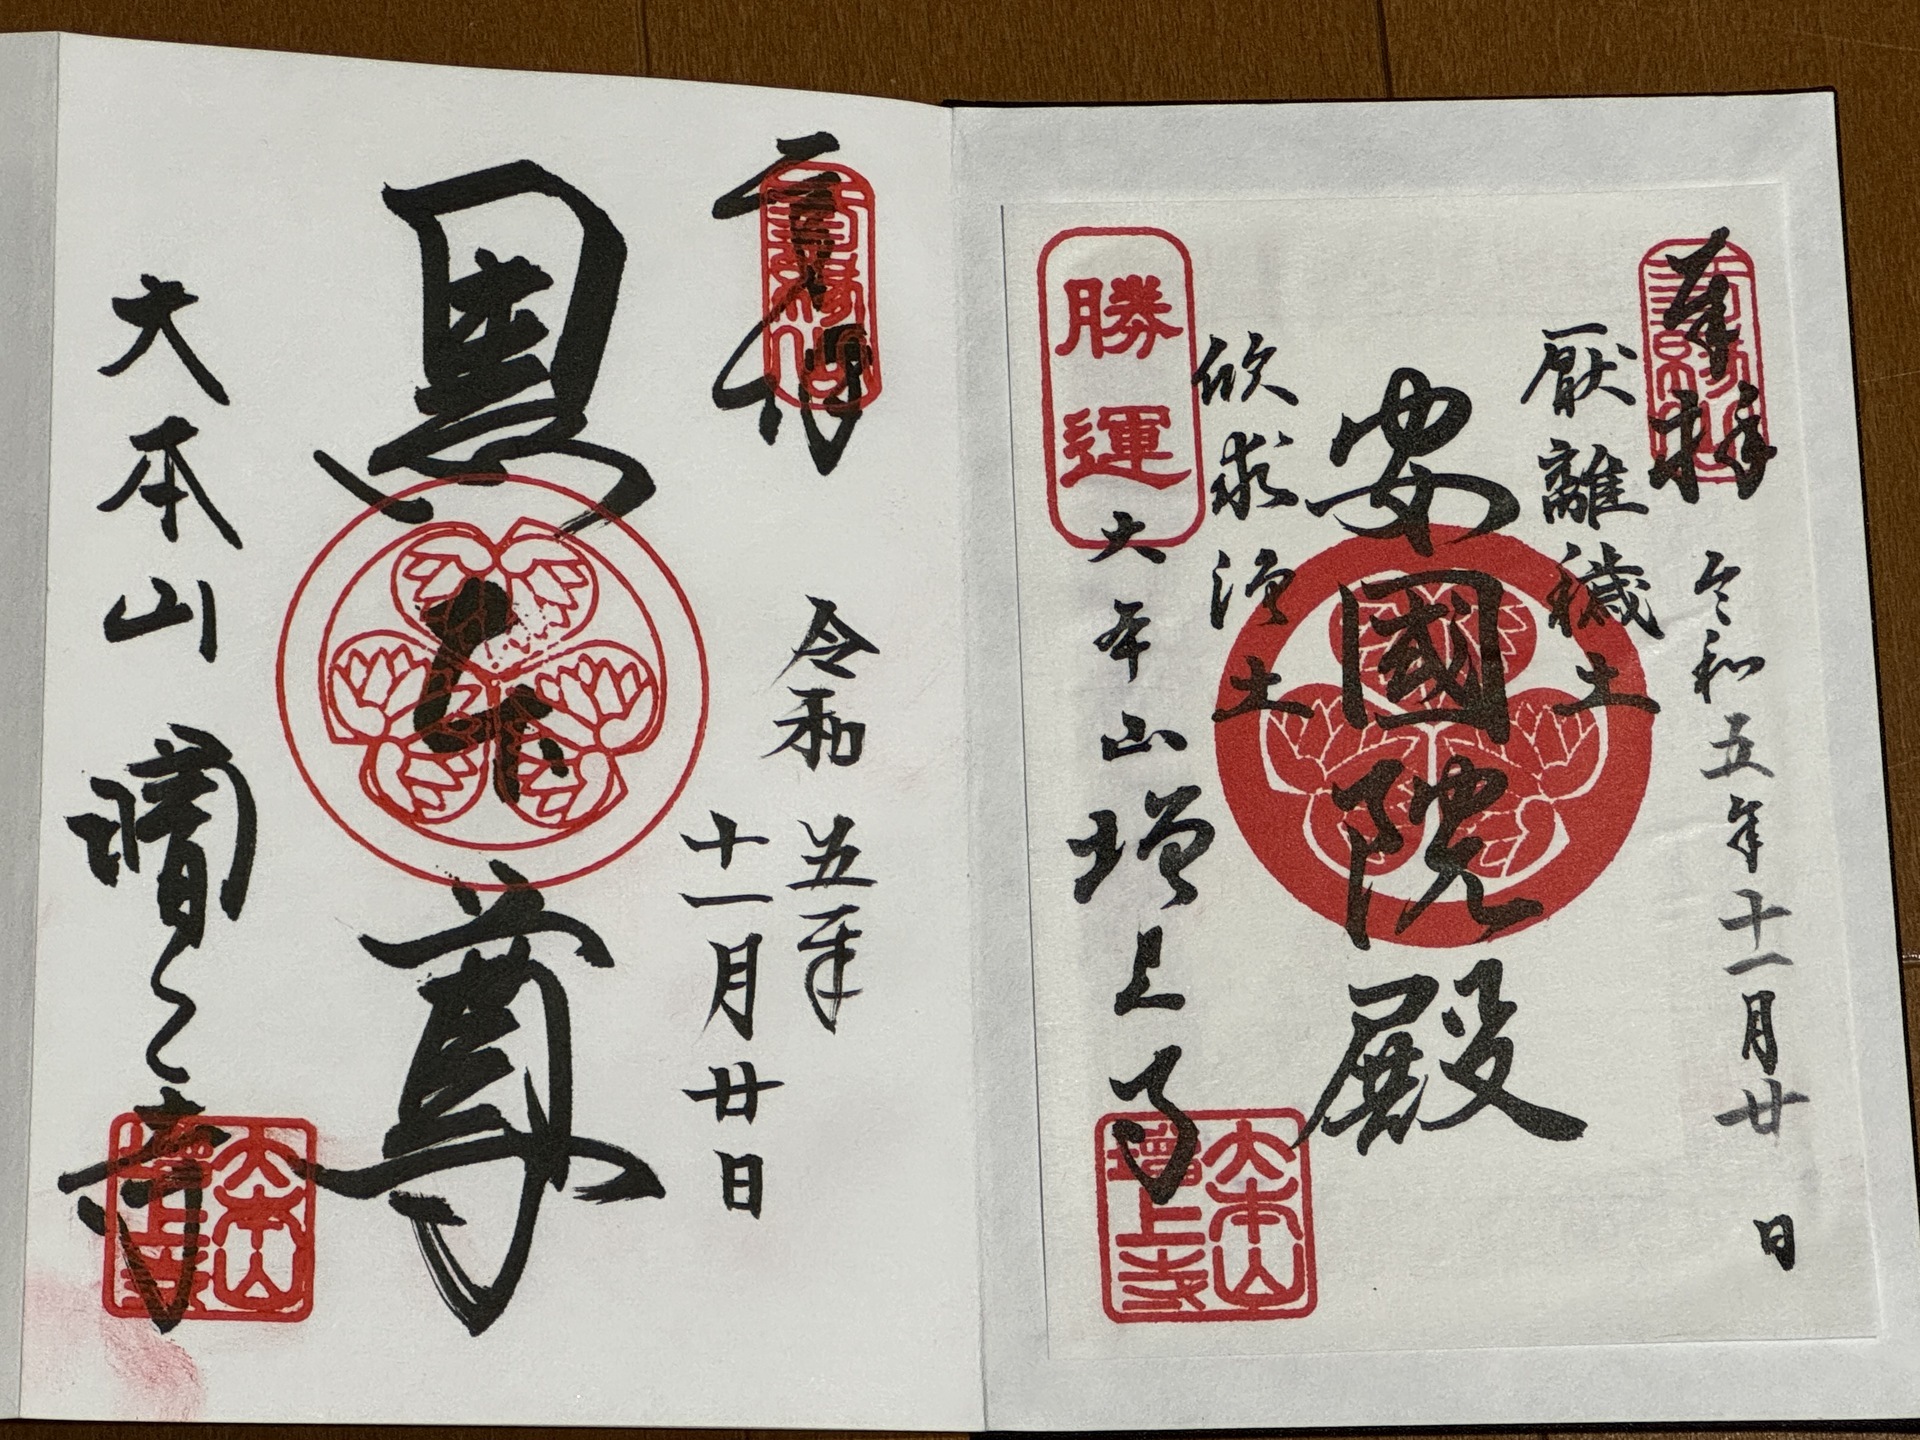 奉拝
令和五年十一月廿日
厭離穢土
安國院殿
欣求浄土
勝運
大本山増上寺
大本山
増上寺
奉拝
令和五年
十一月廿日
黒本尊
大本山増上寺
大本山
増上寺